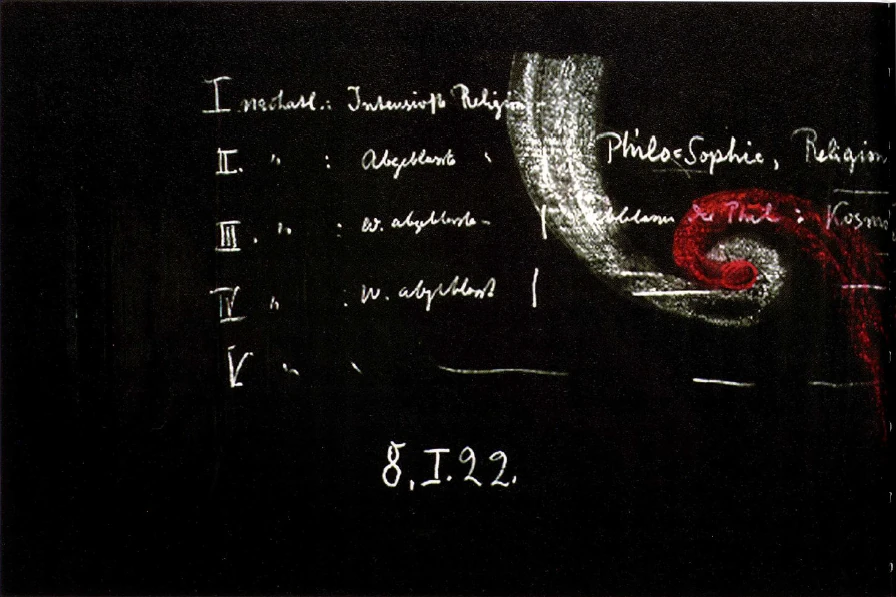 I nachatl.: Intensivste Religion
II. " : Abgeblasste " | Philo=Sophie, Religion
III. " : W. abgeblasste - | der Phil. : Kosmo
IV " : W. abgeblasst |
V " "
8.I.22.